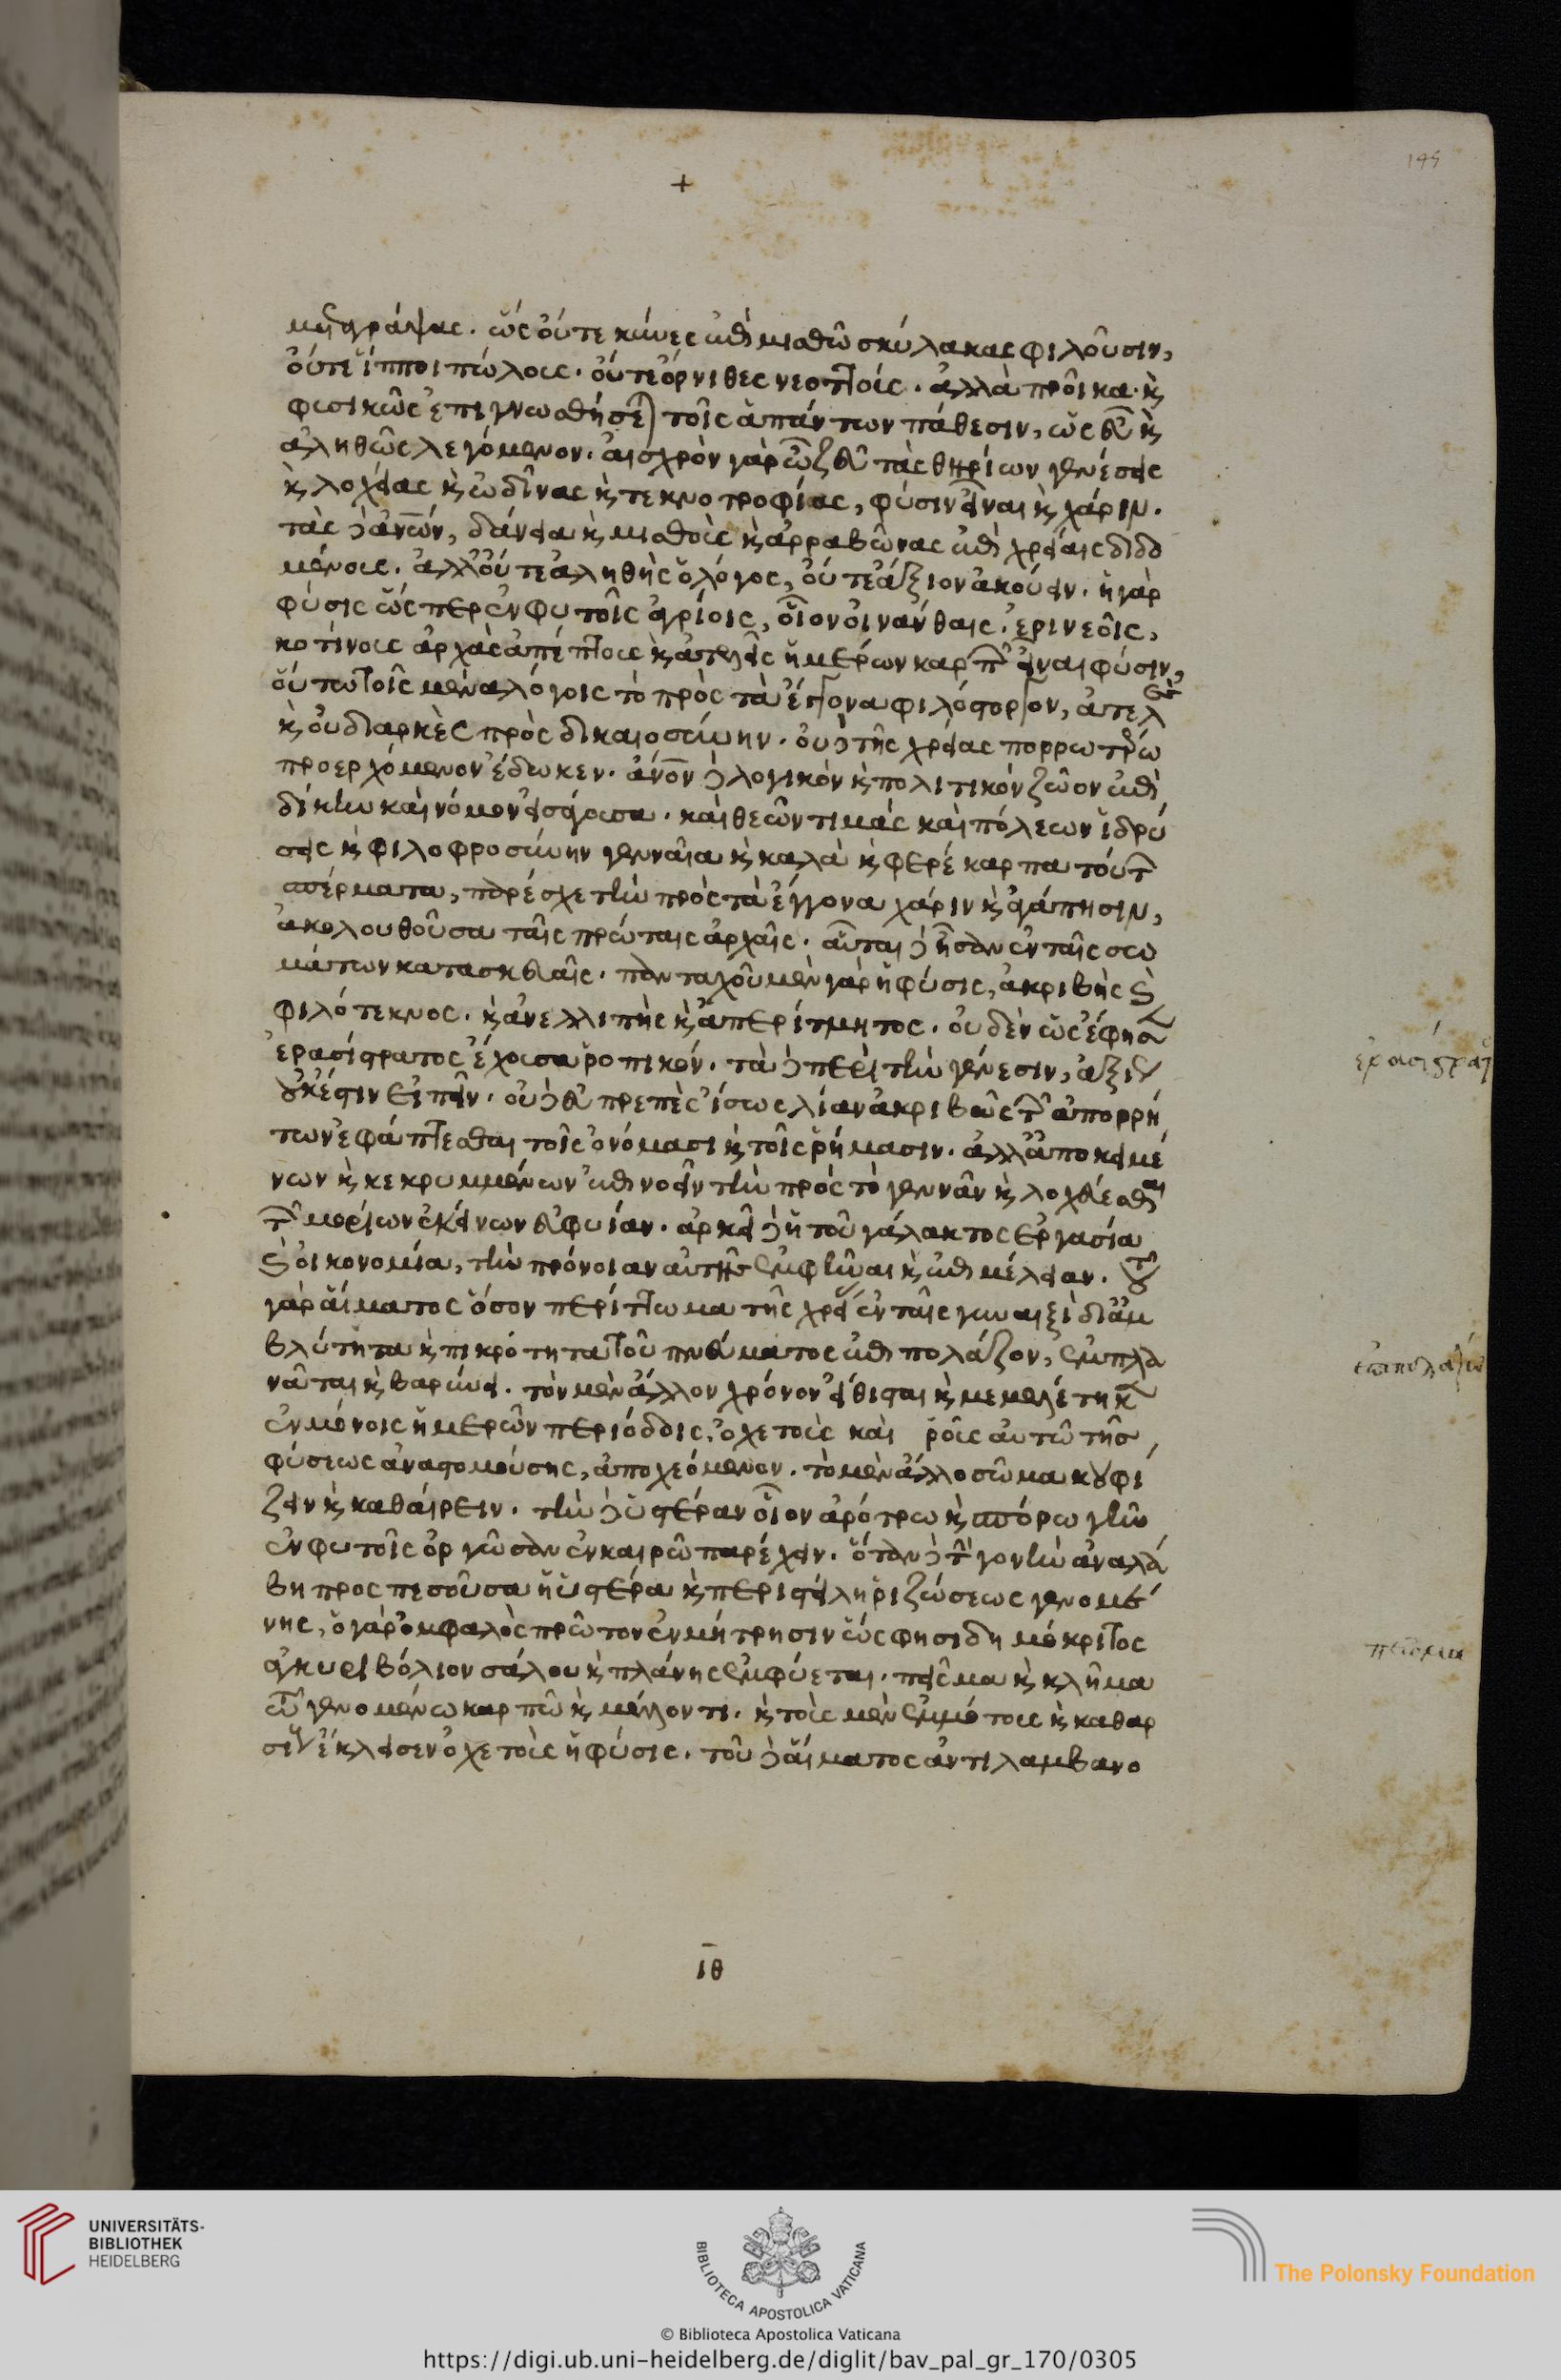 +
195
μὴ γράψας. ὡς οὔτε κύνες ἐπὶ μισθῷ σκύλακας φιλοῦσιν,
οὔτε ἵπποι πώλους. οὔτε ὄρνιθες νεοττούς. ἀλλὰ προῖκα. ϗ
φυσικῶς ἐπιγνωσθήσε) τοῖς ἁπάντων πάθεσιν, ὡς εὖ ϗ
ἀληθῶς λεγόμενον. αἰσχρὸν γὰρ ὦ ζεῦ τὰς θηρίων γενέσεις
ϗ λοχείας ϗ ὠδῖνας ϗ τεκνοτροφίας, φύσιν εἶναι ϗ χάριν.
τὰς δὲ ἀνων, δάνεια ϗ μισθοὺς ϗ ἀρραβῶνας ἐπὶ χρείαις διδο
μένους. ἀλλ' οὔτε ἀληθὴς ὁ λόγος, οὔτε ἄξιον ἀκούειν. ἡ γὰρ
φύσις ὥσπερ ἐν φυτοῖς ἀγρίοις, οἷον οἰνάνθαις. ἐρινεοῖς,
κοτίνοις ἀρχὰς ἀπέπτους ϗ ἀτελεῖς ἡμέρων καρπ εἶναι φύσιν,
οὕτω τοῖς μὲν ἀλόγοις τὸ πρὸς τὰ ἔγγονα φιλόστοργον, ἀτελὲς
ϗ οὐ διαρκὲς πρὸς δικαιοσύνην. οὐδὲ τῆς χρείας πορρωτέρω
προερχόμενον ἔδωκεν. ἀνον δὲ λογικὸν ϗ πολιτικὸν ζῷον ἐπὶ
δίκην καὶ νόμον εἰσάγουσα. καὶ θεῶν τιμὰς καὶ πόλεων ἱδρύ
σεις ϗ φιλοφροσύνην γενναῖα ϗ καλὰ ϗ φερέκαρπα τούτ
σπέρματα, παρέσχε τὴν πρὸς τὰ ἔγγονα χάριν ϗ ἀγάπησιν,
ἀκολουθοῦσα ταῖς πρώταις ἀρχαῖς. αὗται δὲ ἦσαν ἐν ταῖς σω
μάτων κατασκευαῖς. πανταχοῦ μὲν γὰρ ἡ φύσις, ἀκριβὴς ϗ
φιλότεκνος. ϗ ἀνελλιπὴς ϗ ἀπερίτμητος. οὐδὲν ὡς ἔφησ
ἐρασίστρατος ἔχουσα ῥοπικόν. τὰ δὲ περὶ τὴν γένεσιν, ἀξί
οὐκ ἔστιν εἰπεῖν. οὐδ' εὐπρεπὲς ἴσως λίαν ἀκριβῶς τ ἀπορρή
των ἐφάπτεσθαι τοῖς ὀνόμασι ϗ τοῖς ῥήμασιν. ἀλλ' ἀποκειμέ
νων ϗ κεκρυμμένων ἐπινοεῖν τὴν πρὸς τὸ γεννᾶν ϗ λοχεύεσθαι
τ μορίων ἐκείνων εὐφυΐαν. ἀρκεῖ δὲ ἡ τοῦ γάλακτος ἐργασία
ϗ οἰκονομία, τὴν πρόνοιαν αὐτῆς ἐμφῆναι ϗ ἐπιμέλειαν. τοῦ
γὰρ αἵματος ὅσον περίττωμα τῆς χρεί ἐν ταῖς γυναιξὶ δι' ἀμ
βλύτητα ϗ πικρότητα τοῦ πνεύματος ἐπιπολάζον, ἐμπλα
νᾶται ϗ βαρύνει. τὸν μὲν ἄλλον χρόνον εἴθισται ϗ μεμελέτηκ
ἐνμένοις ἡμερῶν περιόδοις, ὀχετοὺς καὶ ῥοῖς αὐτῷ τῆς
φύσεως ἀναστομούσης, ἀποχεόμενον. τὸ μὲν ἄλλο σῶμα κουφί
ζειν ϗ καθαίρειν. τὴν δὲ ὑστέραν οἷον ἀρότρῳ ϗ σπόρῳ γῆν
ἐν φυτοῖς ὀργῶσαν ἐν καιρῷ παρέχειν. ὅταν δὲ τ γονὴν ἀναλά
βῃ προσπεσοῦσα ἡ ὑστέρα ϗ περιστείλῃ ῥιζώσεως γενομέ
νης, ὁ γὰρ ὀμφαλὸς πρῶτον ἐν μήτρῃσιν ὥς φησι δημόκριτος
ἀγκυριβόλιον σάλου ϗ πλάνης ἐμφύεται. πεῖσμα ϗ κλῆμα
τῷ γενομένῳ καρπῷ ϗ μέλλοντι. ϗ τοὺς μὲν ἐμμήνους ϗ καθαρ
σίους ἔκλεισεν ὀχετοὺς ἡ φύσις. τοῦ δὲ αἵματος ἀντιλαμβανο
ἐρασίστρατ
ἐπιπολάζω
πεῖσμα
ιθ
UNIVERSITÄTS-
BIBLIOTHEK
HEIDELBERG
BIBLIOTECA APOSTOLICA VATICANA
The Polonsky Foundation
© Biblioteca Apostolica Vaticana
https://digi.ub.uni-heidelberg.de/diglit/bav_pal_gr_170/0305